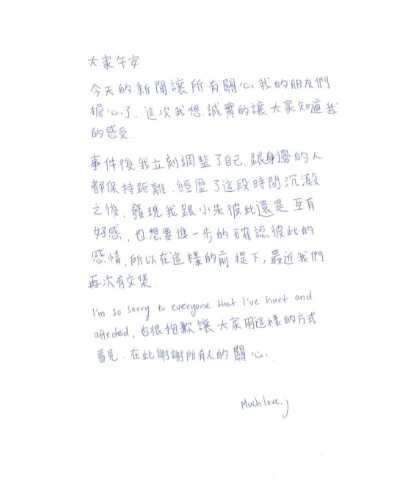 大家午安
今天的新聞讓所有關心我的朋友們
擔心了，這次我想誠實的讓大家知道我
的感受
事件後我立刻調整了自己，跟身邊的人
都保持距離，經歷了這段時間沉澱
之後，發現我跟小朱彼此還是互有
好感，也想要進一步的確認彼此的
感情，所以在這樣的前提下，最近我們
再次有交集
I'm so sorry to everyone that I've hurt and
affected, 也很抱歉讓大家用這樣的方式
看見，在此謝謝所有人的關心。
Much love, J